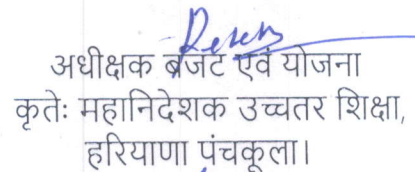 अधीक्षक बजट एवं योजना
कृतेः महानिदेशक उच्चतर शिक्षा,
हरियाणा पंचकूला।